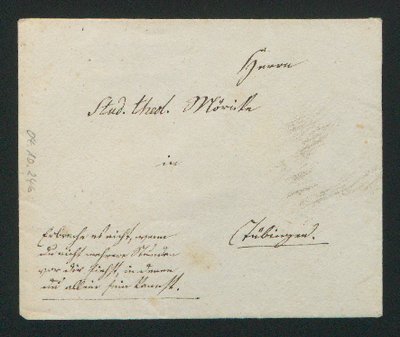 Herrn
Stud. theol. Mörike
in
Tübingen.
Erbreche es nicht, wenn
du nicht mehrere Stunden
vor dir siehst, in denen
du allein sein kannst.